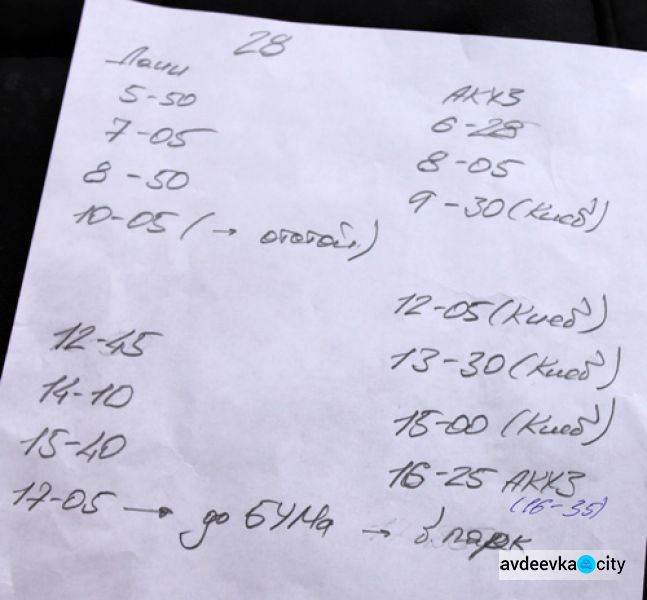 28
Лаши
5-50
7-05
8-50
10-05 (→ отстой.)
12-45
14-10
15-40
17-05 → до БУМа → в парк
АКХЗ
6-28
8-05
9-30 (Киев)
12-05 (Киев)
13-30 (Киев)
15-00 (Киев)
16-25 АКХЗ
(16-35)
avdeevka city